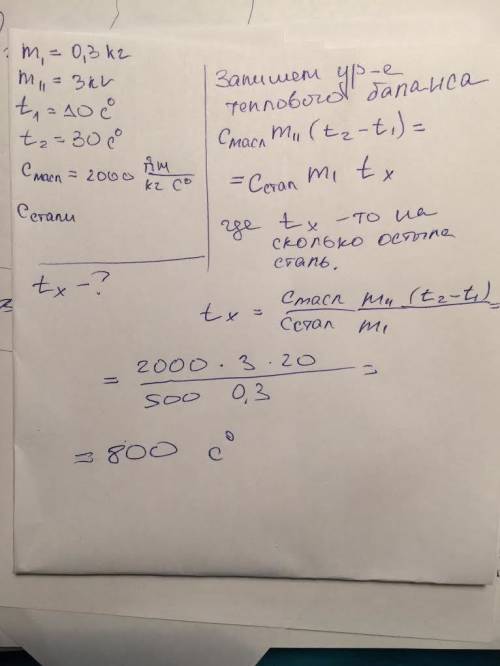 m₁ = 0,3 кг
m₁₁ = 3 кг
t₁ = 10 c°
t₂ = 30 c°
Cмасл = 2000 Дж/кг c°
Cстали
tₓ - ?
Запишем ур-е
теплового баланса
Cмасл m₁₁ (t₂ - t₁) =
= Cстал m₁ tₓ
где tₓ - то на
сколько остыла
сталь.
tₓ = Cмасл m₁₁ (t₂ - t₁) / Cстал m₁ =
= 2000 · 3 · 20 / 500 0,3 =
= 800 c°